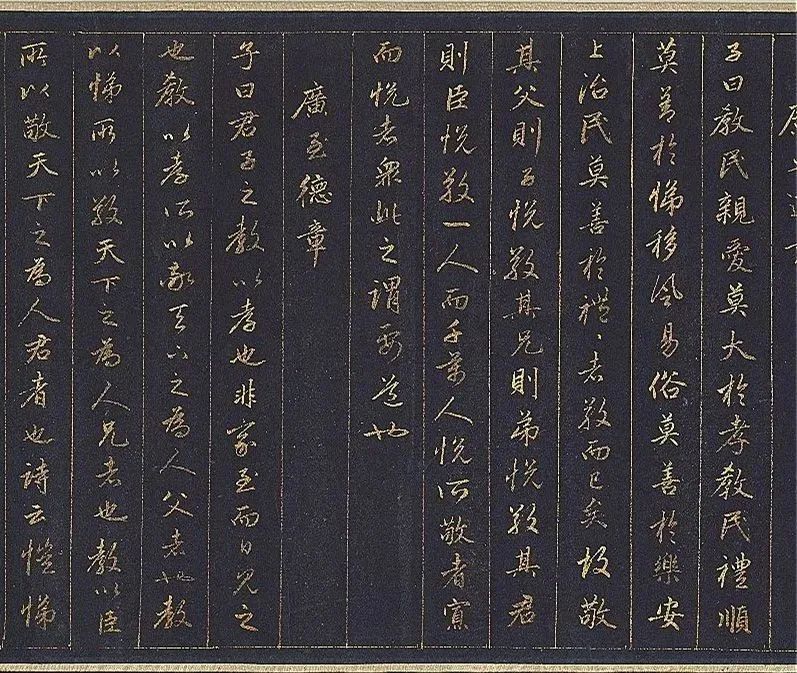 子曰教民親愛莫大於孝教民禮順
莫善於悌移風易俗莫善於樂安
上治民莫善於禮〻者敬而已矣故敬
其父則子悅敬其兄則弟悅敬其君
則臣悅敬一人而千萬人悅所敬者寡
而悅者眾此之謂要道也
廣至德章
子曰君子之教以孝也非家至而日見之
也教以孝所以敬天下之為人父者也教
以悌所以敬天下之為人兄者也教以臣
所以敬天下之為人君者也詩云愷悌